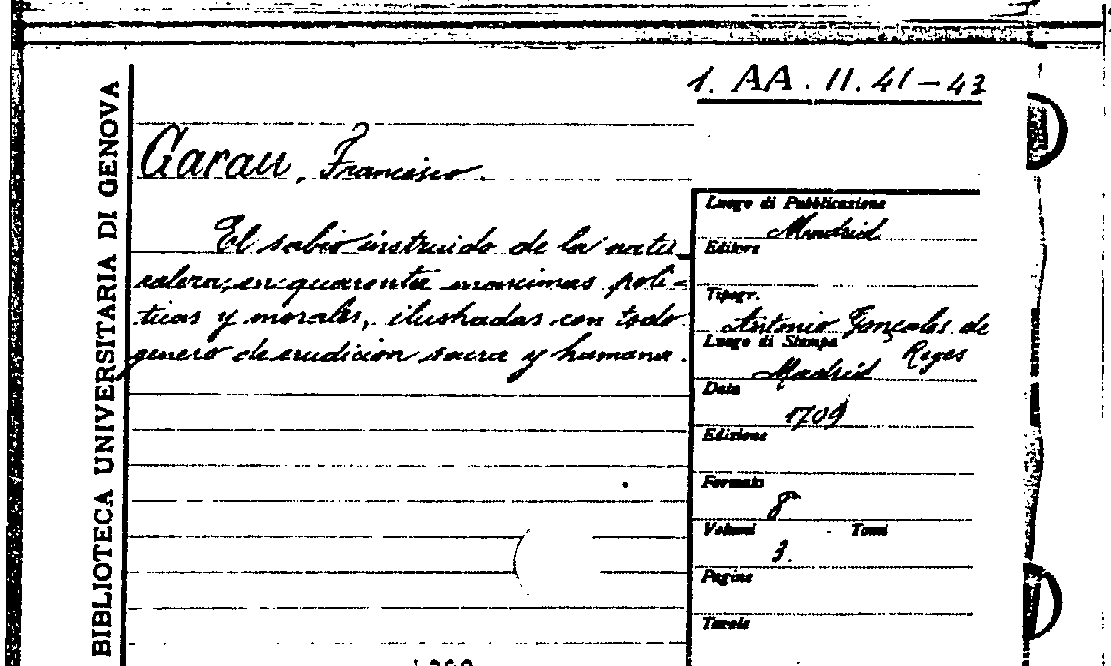 1. AA. 11. 41-43
BIBLIOTECA UNIVERSITARIA DI GENOVA
Garau, Francisco.
El sabio instruido de la natu_
raleza, en quarenta maximas poli=
ticas y morales, ilustradas con todo
genero de erudicion sacra y humana.
Luogo di Pubblicazione
Madrid
Editore
Tipogr.
Antonio Gonçales de
Reyes
Luogo di Stampa
Madrid
Data
1709
Edizione
Formato
8
Volumi - Tomi
3.
Pagine
Tavole